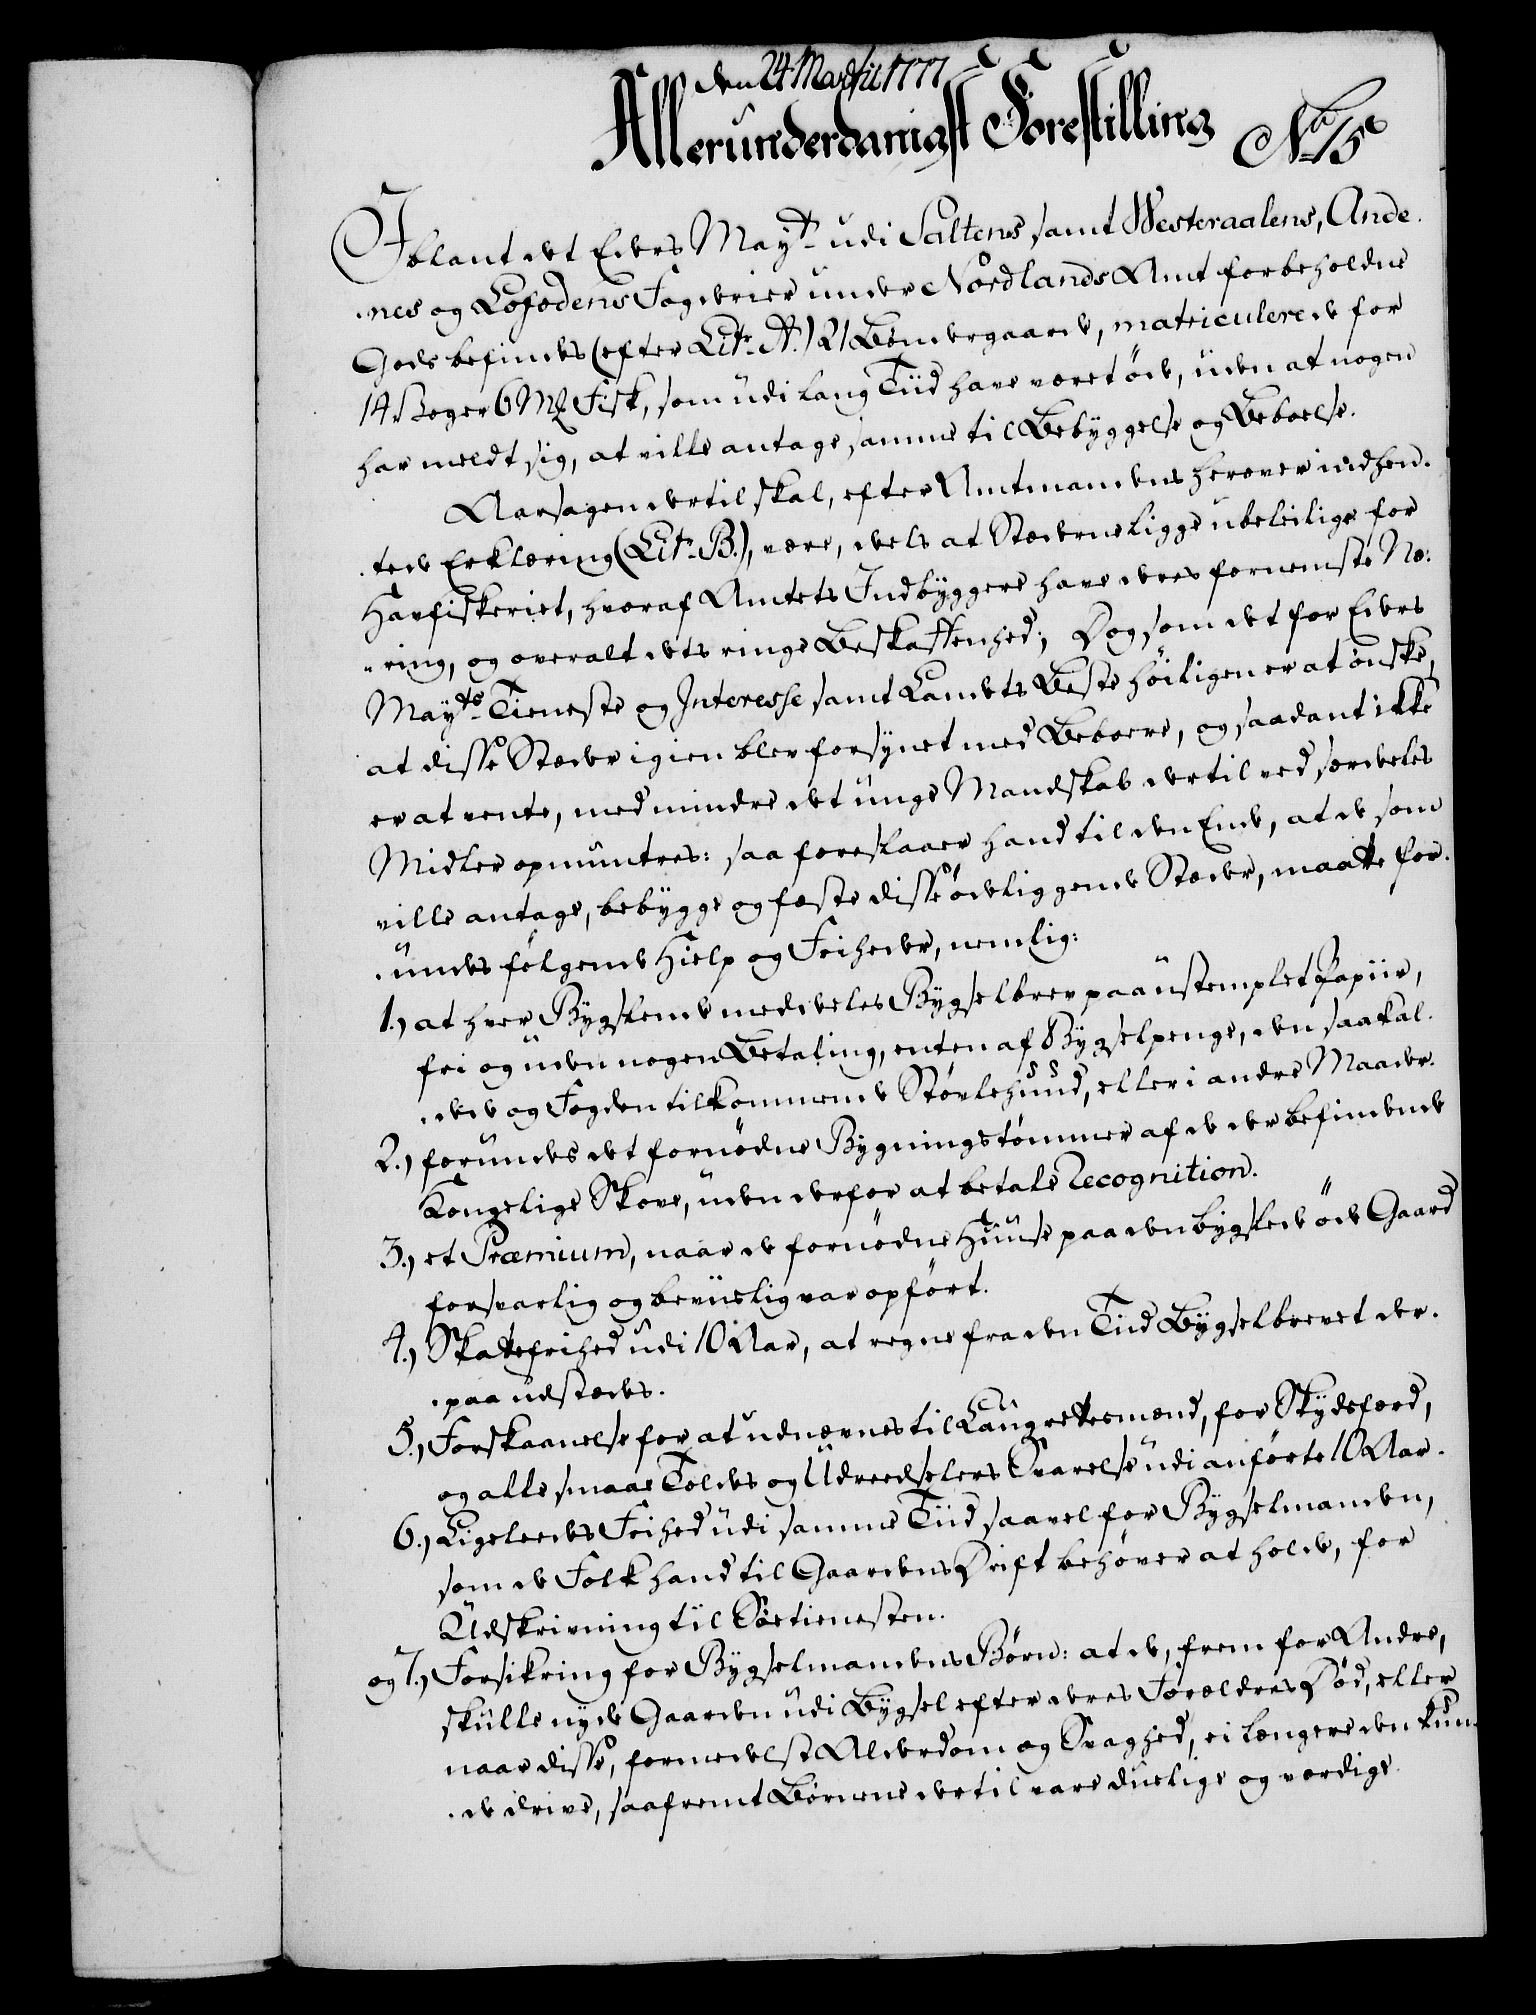 den 24 Martii 1777
Allerunderdanigst Forestilling
No 15
Iblant det Eders Mayt. udi Saltens samt Westeraalens, Ande-
nes og Lofodens Fogderier under Nordlands Amt forbeholdne
Gods befindes (efter Litr. A.) 21 Bøndergaarde, matriculerede for
14 Voger 6 Mk Fisk, som udi lang Tiid have været öde, uden at nogen
har meldt sig, at ville antage samme til Bebyggelse og Beboelse.
Aarsagen dertil skal, efter Amtmandens herover indhen-
tede Erklæring (Litr. B.), være, deels at Stæderne ligge ubeleilige for
Havfiskeriet, hvoraf Amtets Indbyggere have deres fornemste Næ-
ring, og overalt dets ringe Beskaffenhed; Dog som det for Eders
Mayts. Tieneste og Interesse samt Landets Beste höiligen er at önske,
at disse Stæder igien blev forsynet med Beboere, og saadant ikke
er at vente, med mindre det unge Mandskab dertil ved særdeles
Midler opmuntres: saa foreslaaer hand til den Ende, at de som
ville antage, bebygge og fæste disse ödeliggende Stæder, maatte for-
undes fölgende Hielp og Friheder, nemlig:
1.) at hver Bygslende meddeles Bygselbrev paa ustemplet Papiir,
fri og uden nogen Betaling, enten af Bygselpenge, den saa kal-
dede og Fogden tilkommende Størlehund, eller i andre Maader.
2.) forundes det fornödne Bygningstømmer af de der befindende
Kongelige Skove, uden derfor at betale Recognition.
3.) et Præmium, naar de fornödne Huuse paa den bygslede öde Gaard
forsvarlig og beviislig var opfört.
4.) Skattefrihed udi 10 Aar, at regne fra den Tiid Bygselbrevet der-
paa udstædes.
5.) Forskaanelse for at udnævnes til Laugrettesmænd, for Skydsfærd,
og alle smaae Tolders og Udreedselers Svarelse udi anförte 10 Aar.
6.) Ligeleedes Frihed udi samme Tiid saavel for Bygselmanden,
som de Folk hand til Gaardens Drift behöver at holde, for
Udskrivning til Söetienesten.
og 7.) Forsikring for Bygselmandens Børn: at de, frem for Andre,
skulle nyde Gaarden udi Bygsel efter deres Forældres Död, eller
naar disse, formedelst Alderdom og Svaghed, ei længere den kun-
de drive, saafremt Börnene dertil vare duelige og værdige